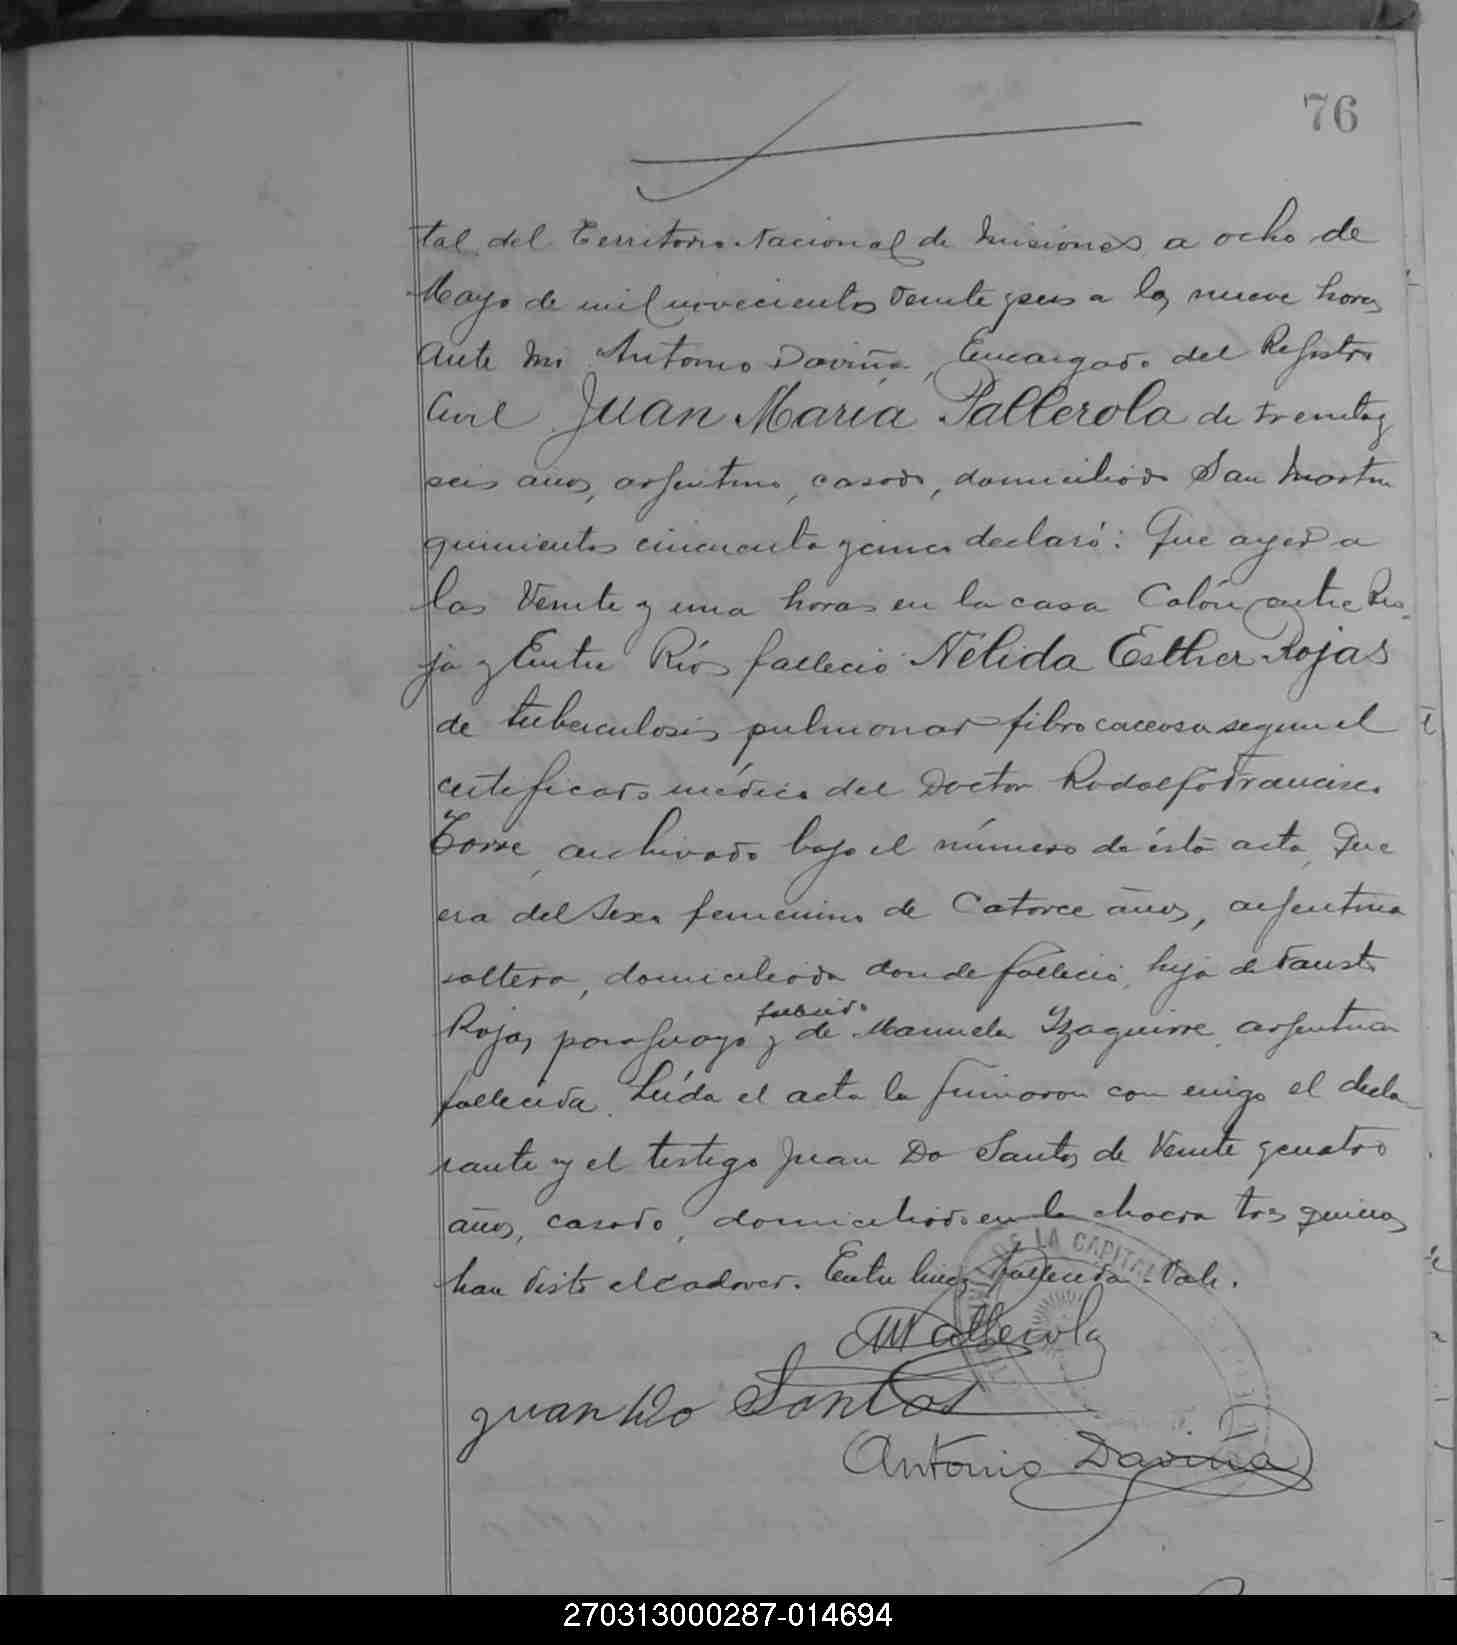 76
tal del Territorio Nacional de Misiones a ocho de
Mayo de mil novecientos veinte y seis a las nueve horas
ante mi Antonio Daviña, Encargado del Registro
Civil Juan María Pallerola de treinta y
seis años, argentino, casado, domiciliado San Martin
quinientos cincuenta y cinco declaró: Que ayer a
las veinte y una horas en la casa Colón entre Rio
ja y Entre Ríos falleció Nélida Esther Rojas
de tuberculosis pulmonar fibro caceosa segun el
certificado médico del Doctor Rodolfo Francisco
Torre, archivado bajo el número de ésta acta, Que
era del sexo femenino de Catorce años, argentina
soltera, domiciliada donde falleció, hija de Fausto
Rojas, paraguayo y de Manuela Yzaguirre, argentina
fallecida. Leída el acta la firmaron con migo el decla
rante y el testigo Juan Do Santos de veinte y cuatro
años, casado, domiciliado en la chacra tres quienes
han visto el cadaver. Entre lineas fallecido. Vale.
DE LA CAPITAL
MPallerola
Juan Do Santos
Antonio Daviña
270313000287-014694